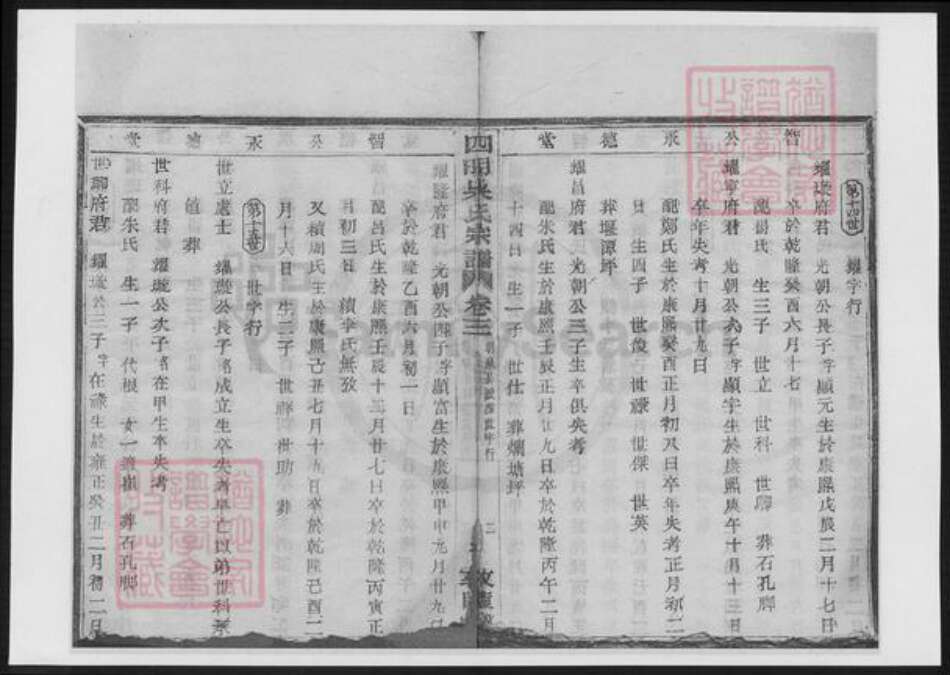 智公永德堂
第十四世 耀字行
耀璇府君 光朝公長子字顯元生於康熙戊辰二月十七日
卒於乾隆癸酉六月十七
配楊氏 生三子 世立 世科 世聊 葬石孔脚
耀寧府君 光朝公次子字顯宇生於康熙庚午十月十三日
卒年失考十月廿九日
配鄭氏生於康熙癸酉正月初八日卒年失考正月初二
日 生四子 世俊 世祿 世傑 世英
葬堰潭坪
耀昌府君 光朝公三子生卒俱失考
配朱氏生於康熙壬辰正月廿九日卒於乾隆丙午二月
十四日 生一子 世仕 葬爛塘坪
四明吳氏宗譜 卷三
二
智公永德堂
耀隆府君 光朝公四子字顯富生於康熙甲申九月廿九日
卒於乾隆乙酉六月初一日
配呂氏生於康熙壬辰十二月廿七日卒於乾隆丙寅正
月初三日 續李氏無攷
又續周氏生於康熙己丑七月十九日卒於乾隆己酉二
月十六日 生二子 世 世助 葬
第十五世 世字行
世立處士 耀璇公長子名成立生卒失考早亡以弟世科承
葬
世科府君 耀璇公次子名在甲生卒失考
配朱氏 生一子年代根 女一適崔 葬石孔脚
世聊府君 耀璇公三子 在祿生於雍正癸丑二月初二日